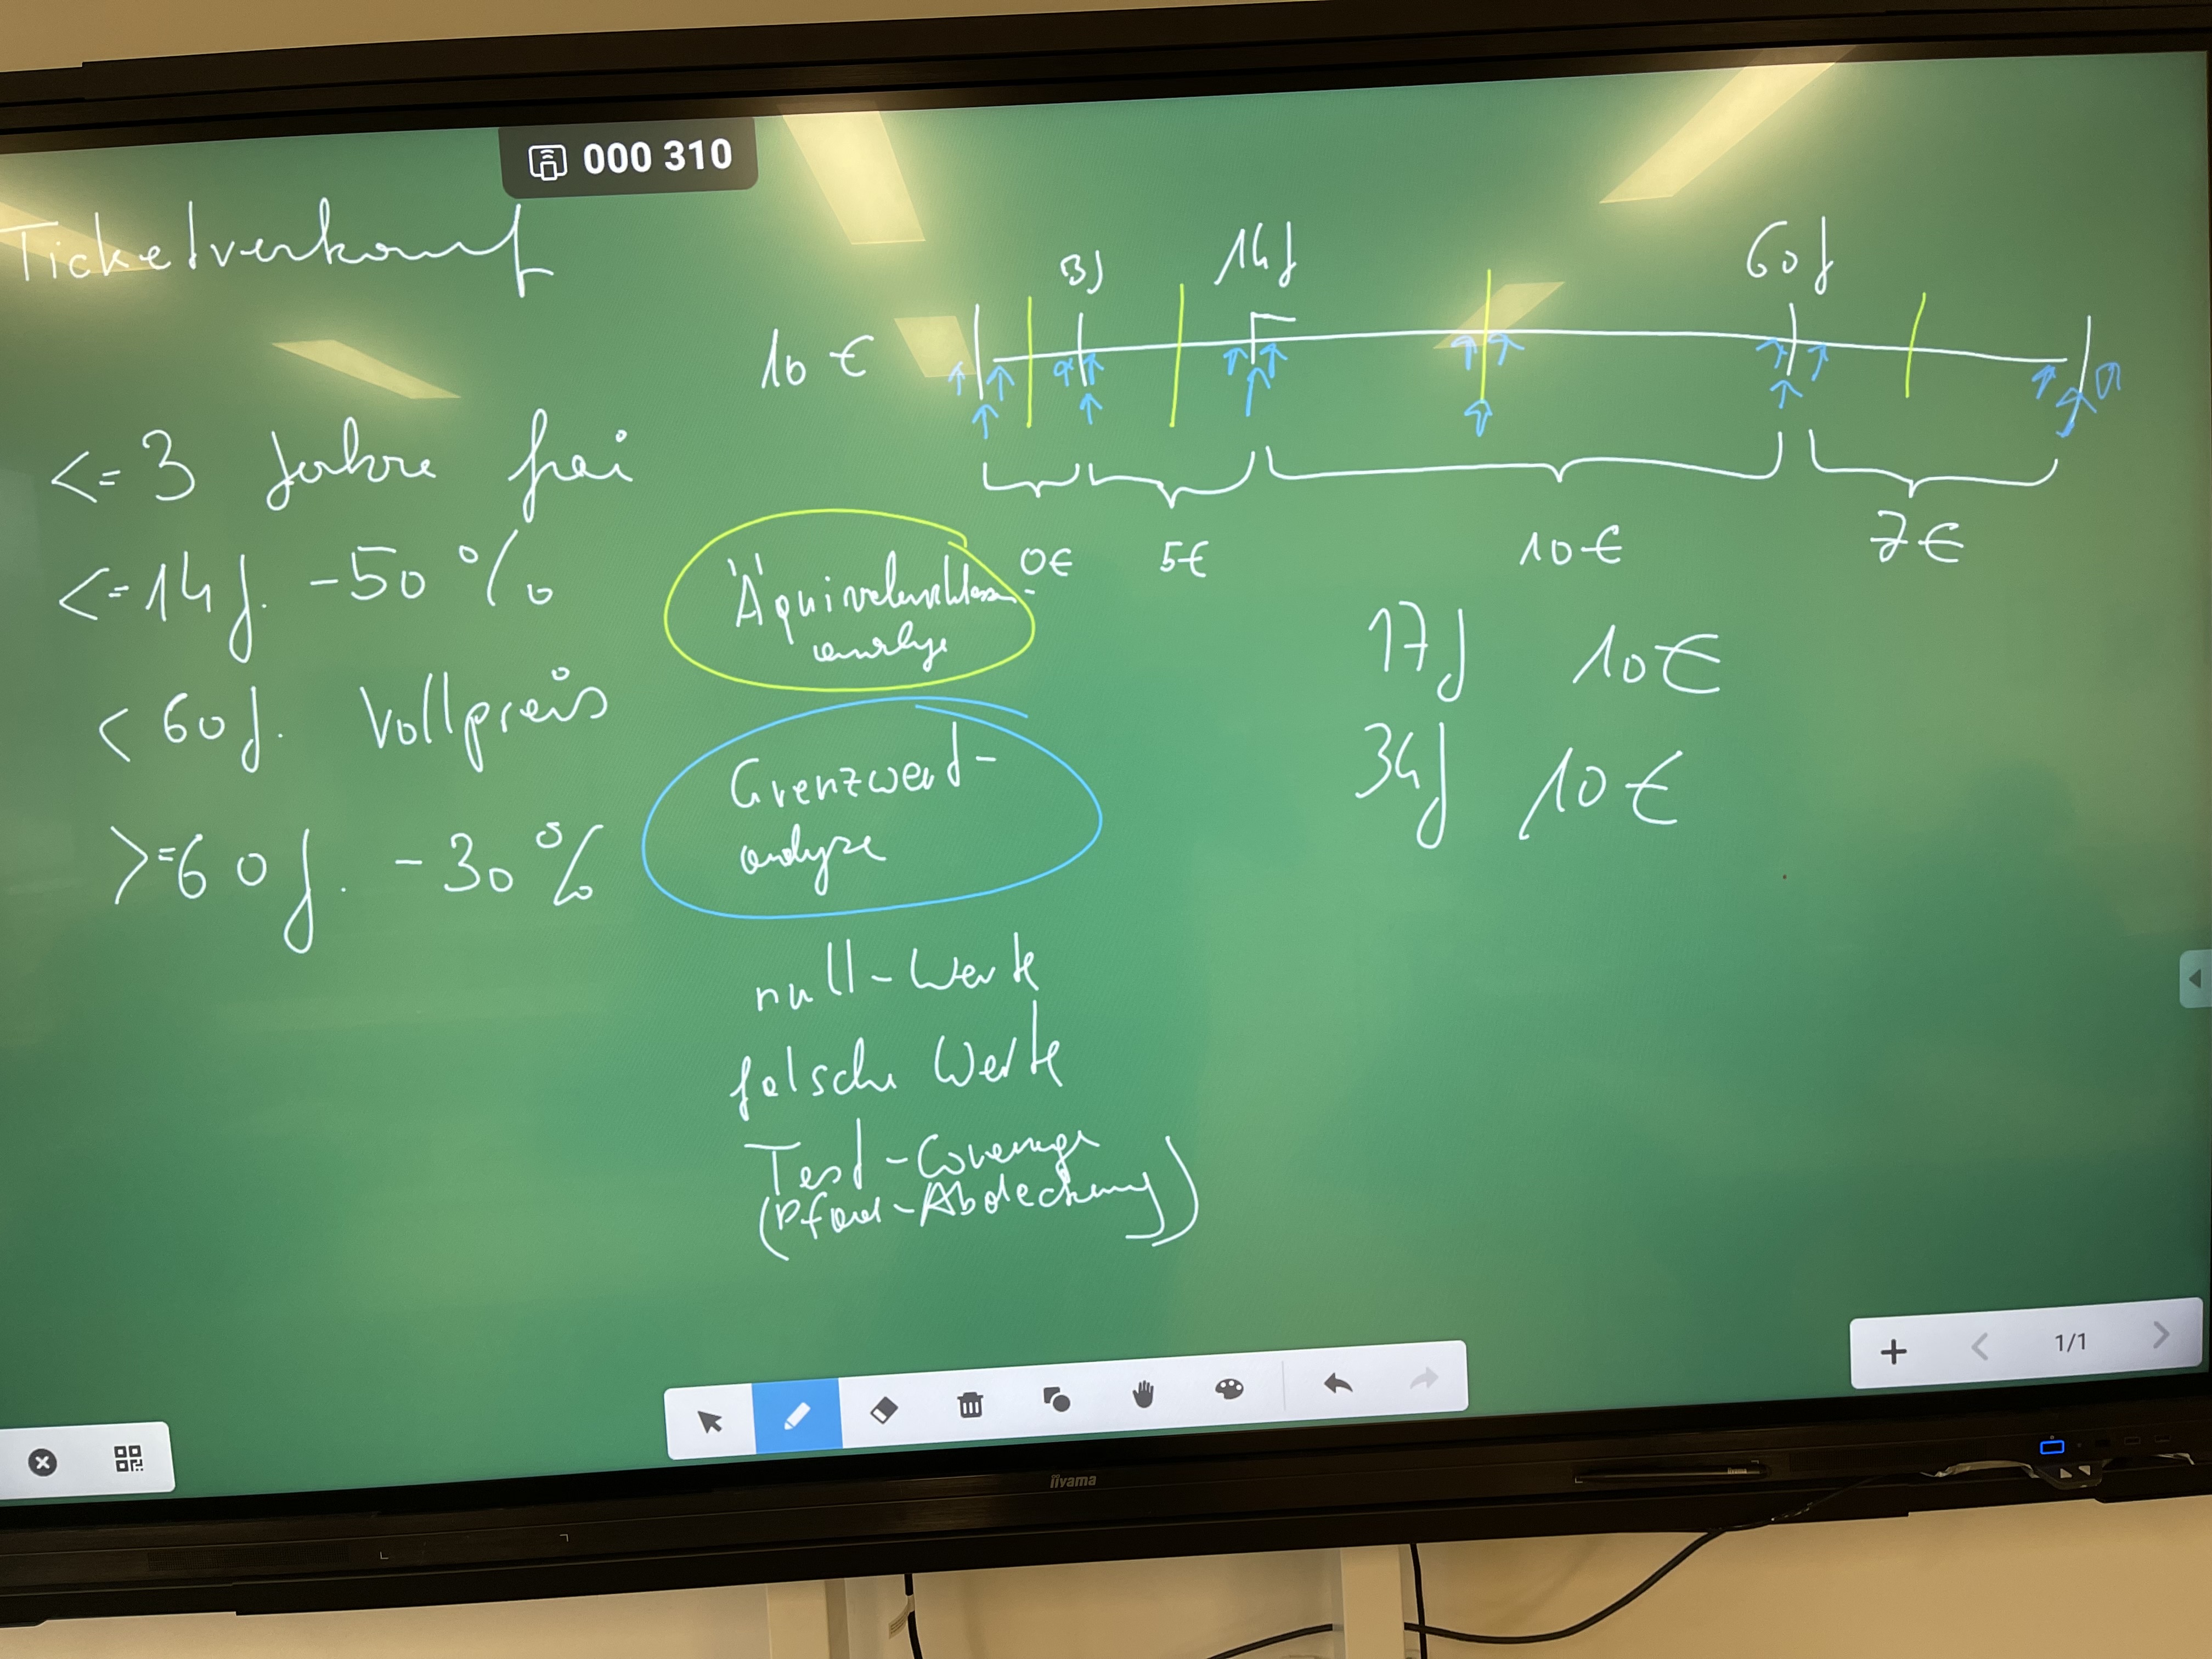 000 310
Ticketverkauf
<=3 Jahre frei
<=14 J. -50%
<60 J. Vollpreis
>=60 J. -30%
10 €
3J
14J
60J
0€
5€
10€
7€
Äquivalenzklassen-
analyse
Grenzwert-
analyse
null-Werte
falsche Werte
Test-Coverage
(Pfad-Abdeckung)
17J 10€
34J 10€
1/1
iiyama